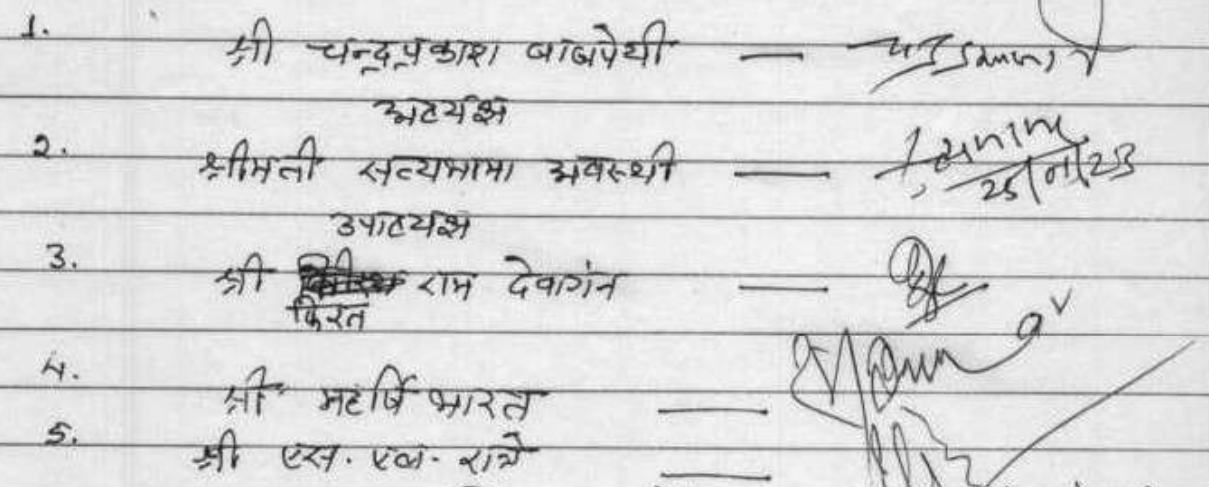 1. श्री चन्द्रप्रकाश बाजपेयी —
अध्यक्ष
2. श्रीमती सत्यभामा अवस्थी — 25/01/23
उपाध्यक्ष
3. श्री राम देवांगन —
किरत
4. श्री महर्षि भारत —
5. श्री एस. एल. रात्रे —